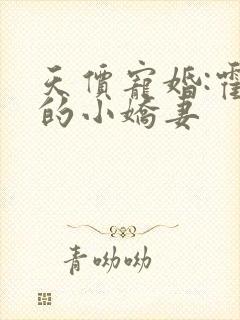 天價寵婚:霍
的小嬌妻
青呦呦